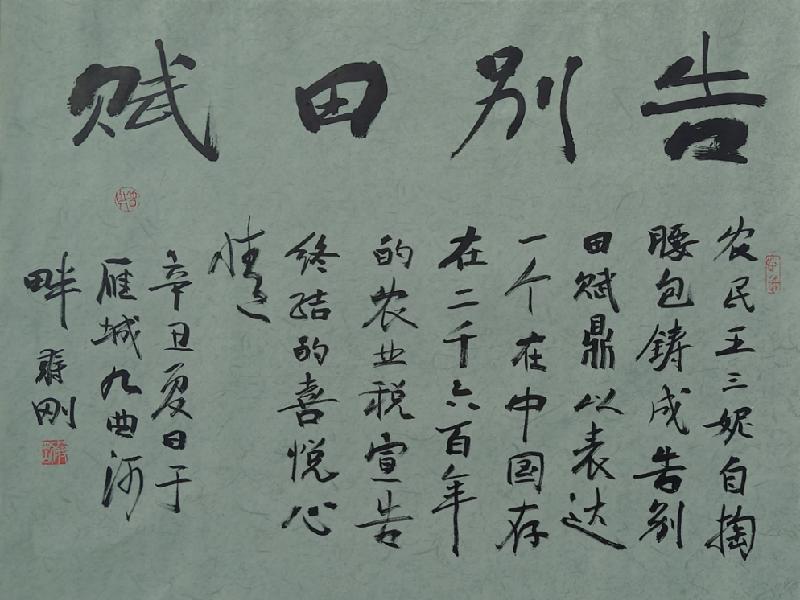 告别田赋
农民王三妮自掏
腰包铸成告别
田赋鼎以表达
一个在中国存
在二千六百年
的农业税宣告
终结的喜悦心
情
辛丑夏日于
雁城九曲河
畔 蒋刚